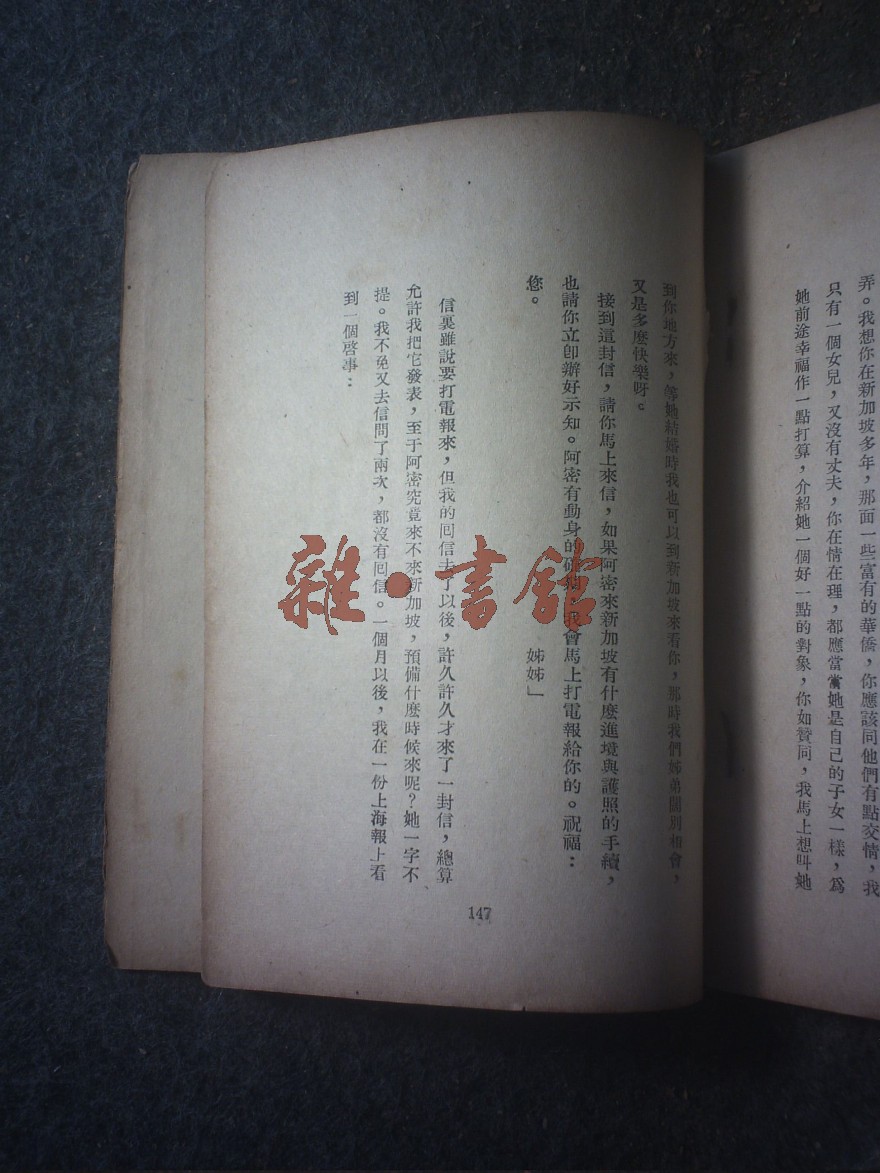 弄。我想你在新加坡多年，那面一些富有的華僑，你應該同他們有點交情，我
只有一個女兒，又沒有丈夫，你在情在理，都應當當她是自己的子女一樣，爲
她前途幸福作一點打算，介紹她一個好一點的對象，你如贊同，我馬上想叫她
到你地方來，等她結婚時我也可以到新加坡來看你，那時我們姊弟闊別相會，
又是多麼快樂呀。
接到這封信，請你馬上來信，如果阿密來新加坡有什麼進境與護照的手續，
也請你立卽辦好示知。阿密有動身的 我會馬上打電報給你的。祝福：
您。
姊姊」
信裏雖說要打電報來，但我的囘信去了以後，許久許久才來了一封信，總算
允許我把它發表，至于阿密究竟來不來新加坡，預備什麼時候來呢？她一字不
提。我不免又去信問了兩次，都沒有囘信。一個月以後，我在一份上海報上看
到一個啓事：
147
雜·書館